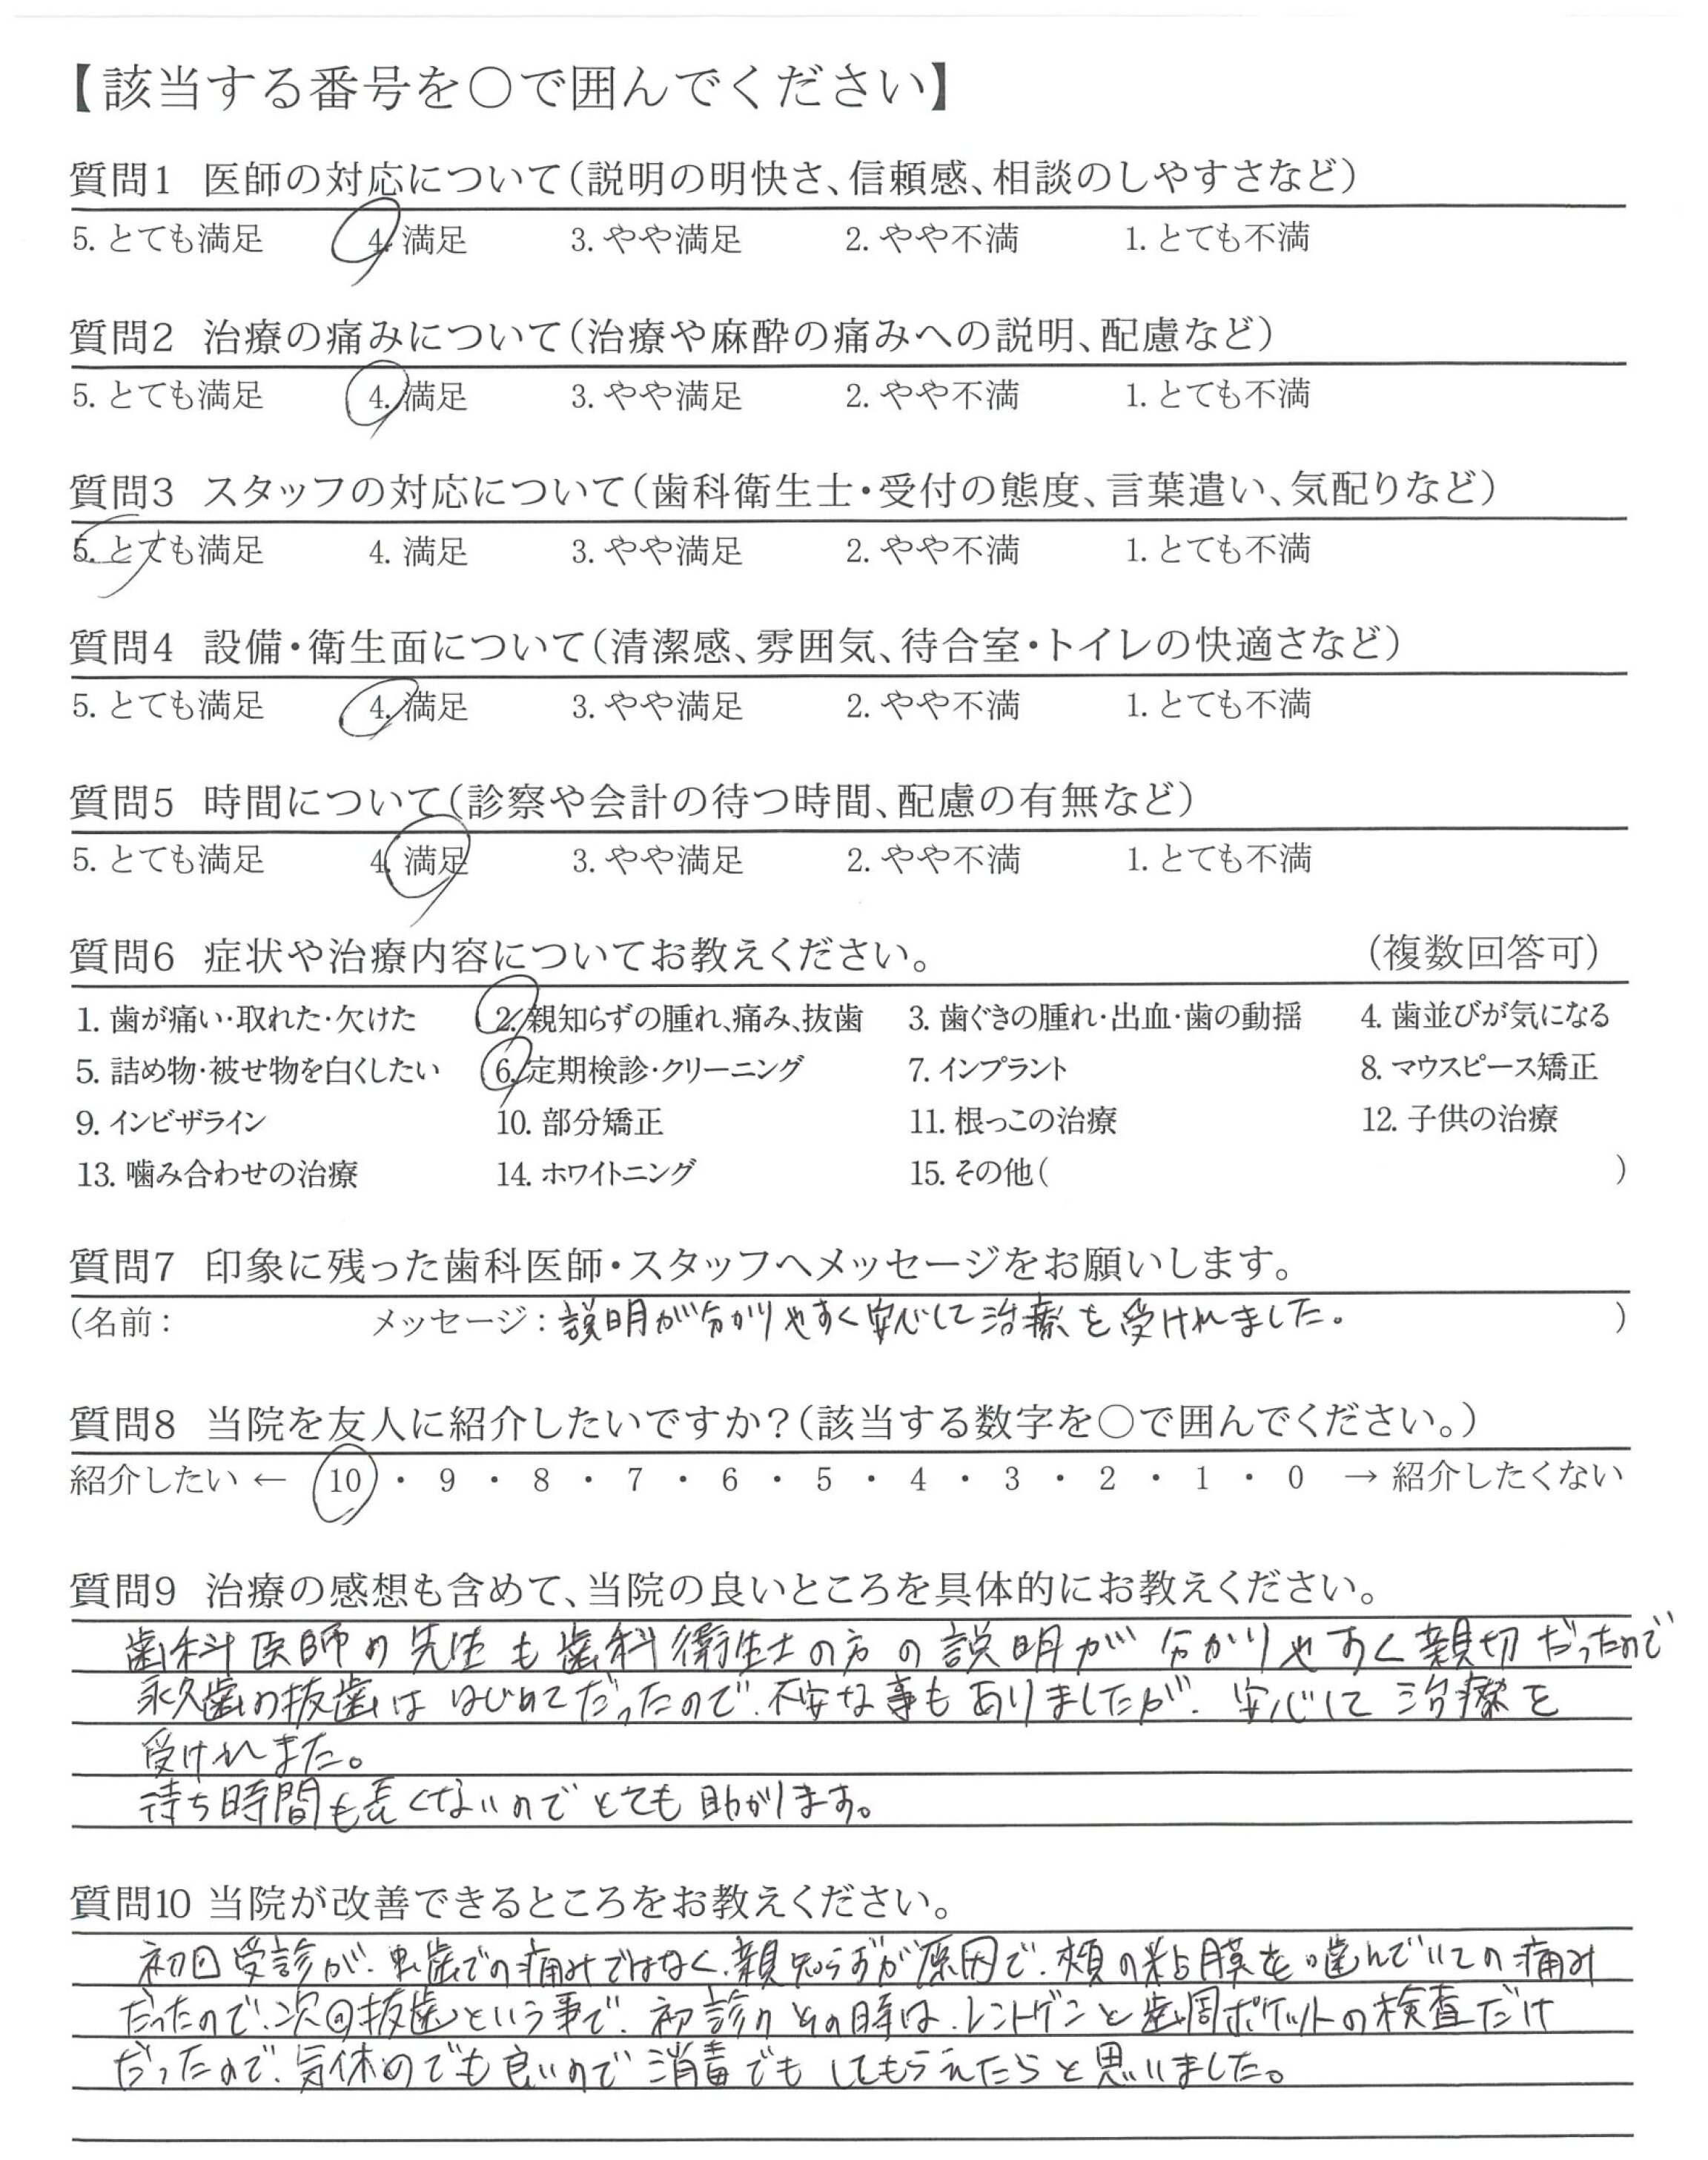 【該当する番号を○で囲んでください】
質問1 医師の対応について(説明の明快さ、信頼感、相談のしやすさなど)
5. とても満足 4. 満足 3. やや満足 2. やや不満 1. とても不満
質問2 治療の痛みについて(治療や麻酔の痛みへの説明、配慮など)
5. とても満足 4. 満足 3. やや満足 2. やや不満 1. とても不満
質問3 スタッフの対応について(歯科衛生士・受付の態度、言葉遣い、気配りなど)
5. とても満足 4. 満足 3. やや満足 2. やや不満 1. とても不満
質問4 設備・衛生面について(清潔感、雰囲気、待合室・トイレの快適さなど)
5. とても満足 4. 満足 3. やや満足 2. やや不満 1. とても不満
質問5 時間について(診察や会計の待つ時間、配慮の有無など)
5. とても満足 4. 満足 3. やや満足 2. やや不満 1. とても不満
質問6 症状や治療内容についてお教えください。 (複数回答可)
1. 歯が痛い・取れた・欠けた 2. 親知らずの腫れ、痛み、抜歯 3. 歯ぐきの腫れ・出血・歯の動揺 4. 歯並びが気になる
5. 詰め物・被せ物を白くしたい 6. 定期検診・クリーニング 7. インプラント 8. マウスピース矯正
9. インビザライン 10. 部分矯正 11. 根っこの治療 12. 子供の治療
13. 噛み合わせの治療 14. ホワイトニング 15. その他( )
質問7 印象に残った歯科医師・スタッフへメッセージをお願いします。
(名前: メッセージ: 説明が分かりやすく安心して治療を受けれました。 )
質問8 当院を友人に紹介したいですか?(該当する数字を○で囲んでください。)
紹介したい ← 10 ・ 9 ・ 8 ・ 7 ・ 6 ・ 5 ・ 4 ・ 3 ・ 2 ・ 1 ・ 0 → 紹介したくない
質問9 治療の感想も含めて、当院の良いところを具体的にお教えください。
歯科医師の先生も歯科衛生士の方の説明が分かりやすく親切だったので
永久歯の抜歯ははじめてだったので、不安な事もありましたが、安心して治療を
受けれまた。
待ち時間も長くないのでとても助かります。
質問10 当院が改善できるところをお教えください。
初回受診が、虫歯での痛みではなく、親知らずが原因で、頬の粘膜を噛んでいての痛み
だったので、次回抜歯という事で、初診のその時は、レントゲンと歯周ポケットの検査だけ
だったので、気休めでも良いので消毒でもしてもらえたらと思いました。